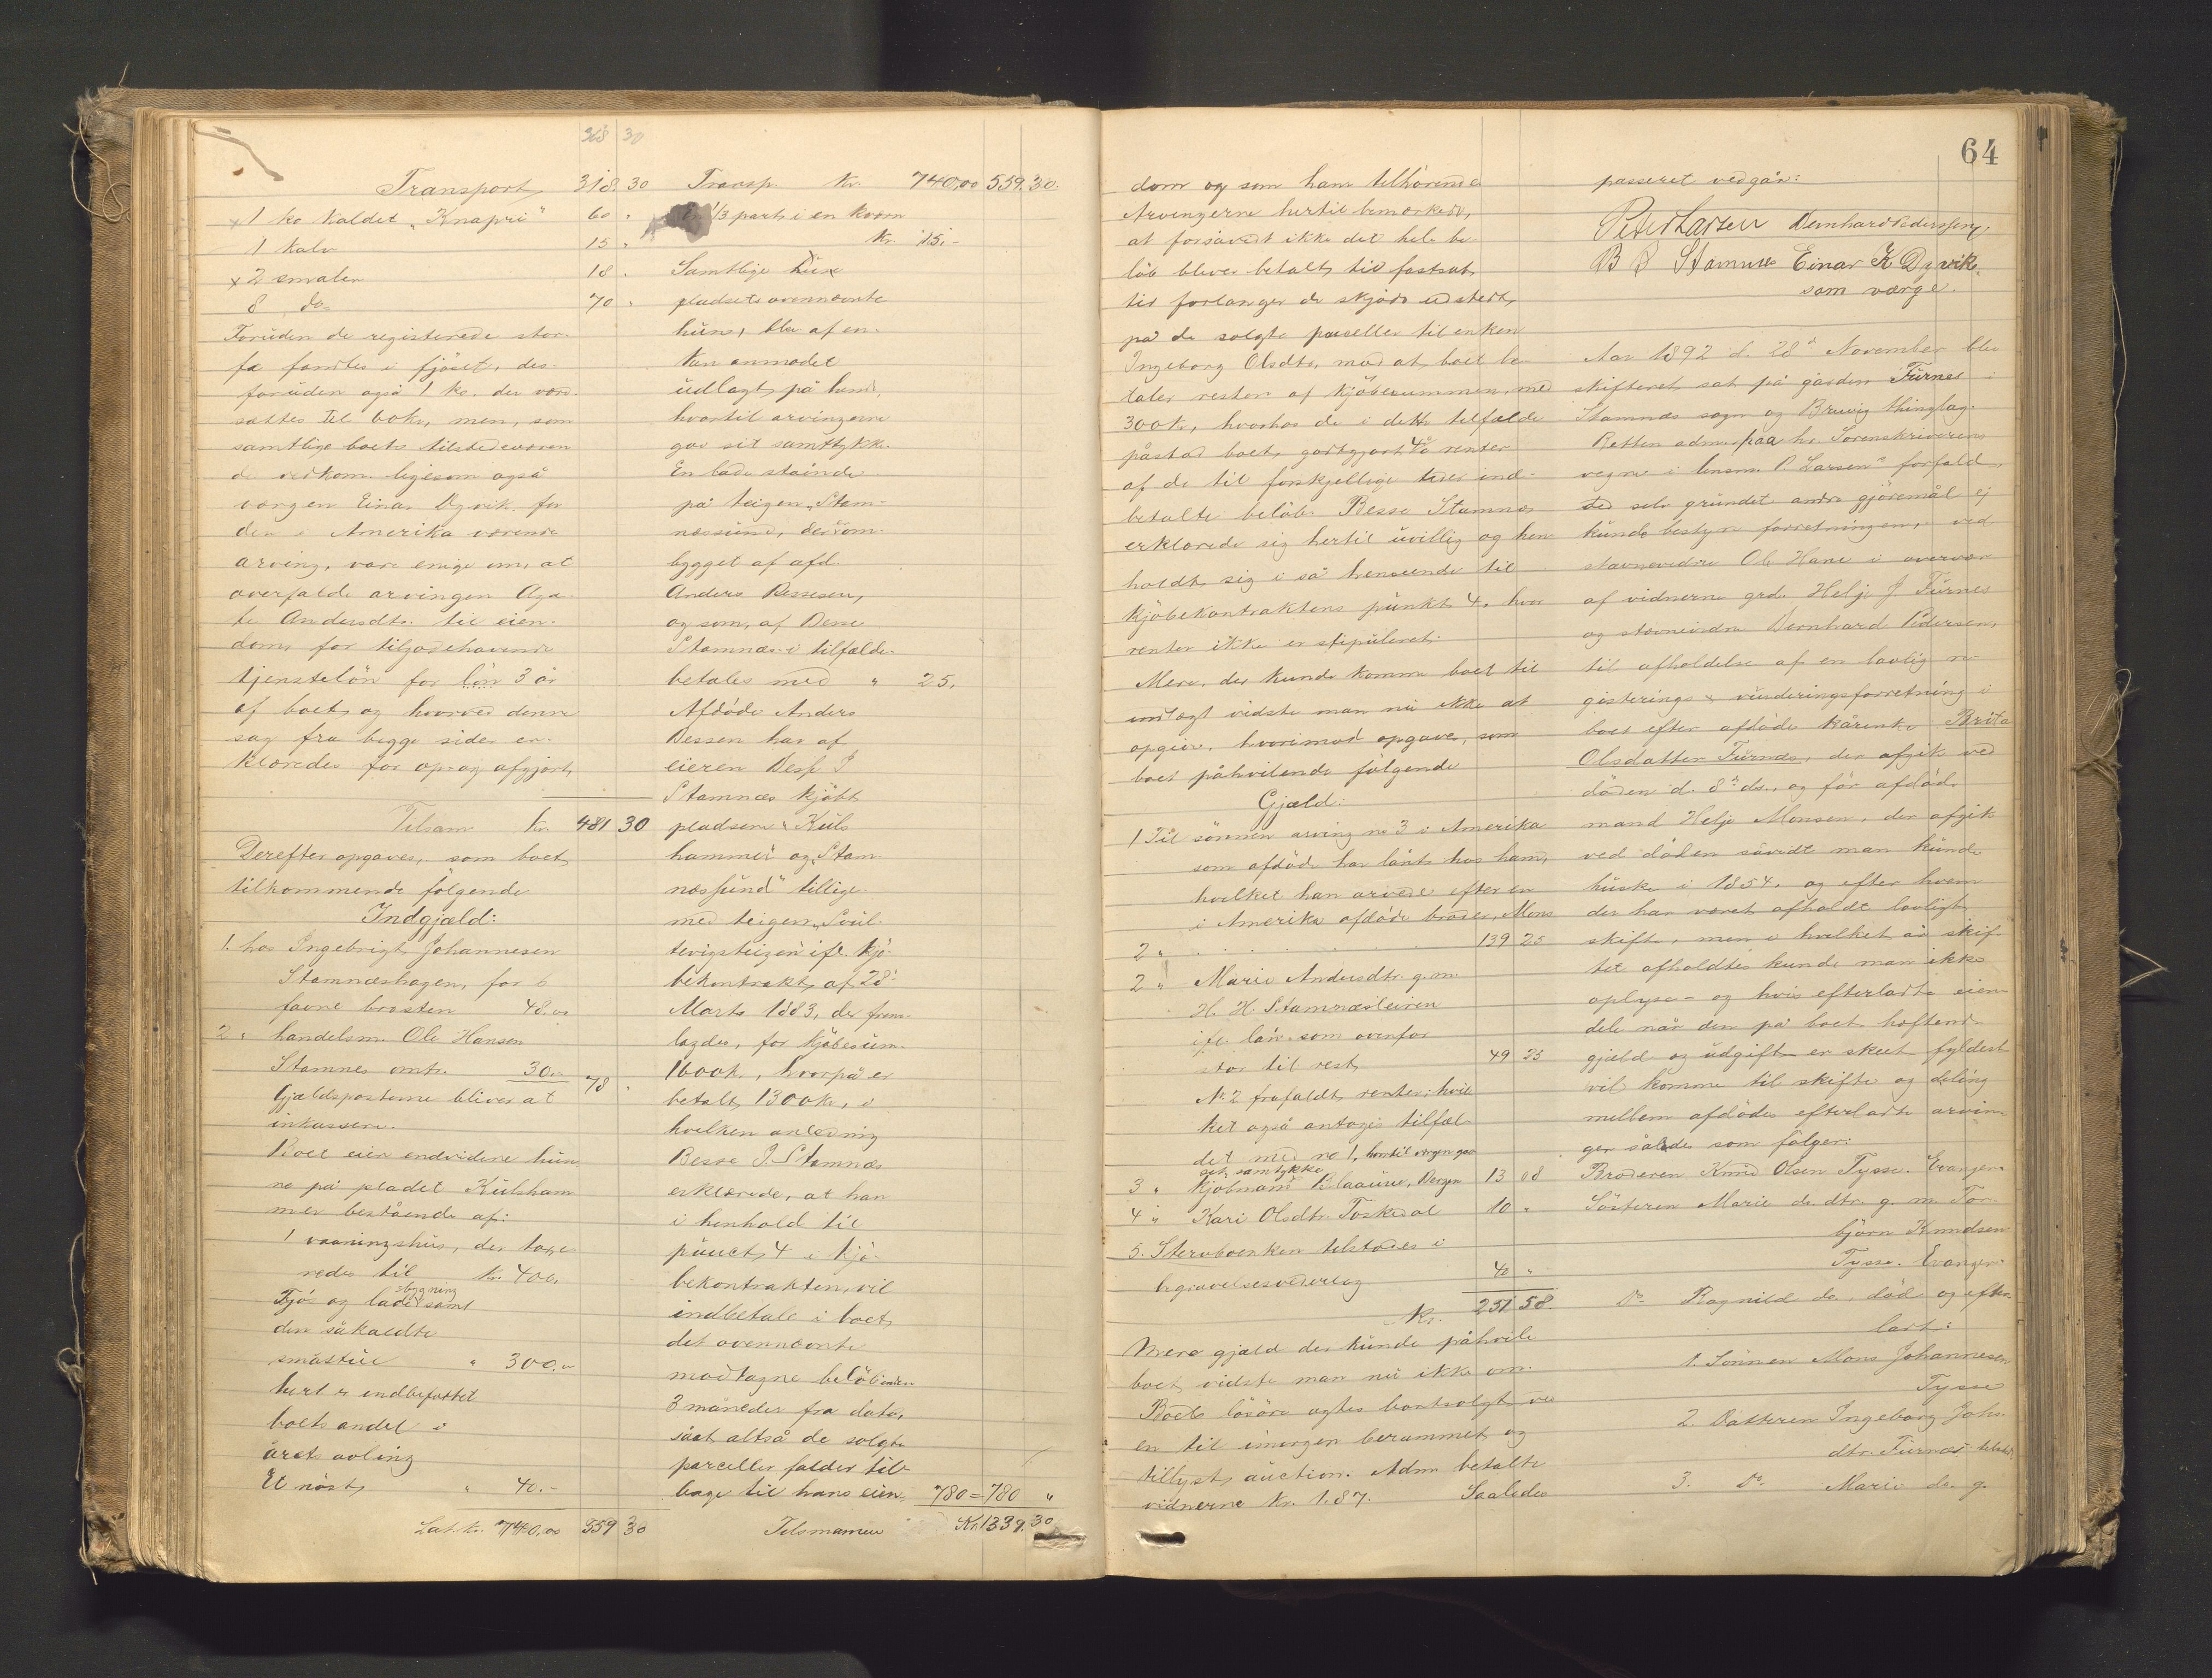 368 30
Transport 318 30
x 1 ko kaldet „Knapri" 60 "
1 kalv 15 "
x 2 smaler 18 "
8 do 70 "
Foruden de registerede stor-
fæ fandtes i fjöset, des-
foruden også 1 ko, der værd-
sættes til 60kr, men, som
samtlige boets tilstedeværen
de vedkom. ligesom også
værgen Einar Dyvik, for
den i Amerika værende
arving, vare enige om, at
overfalde arvingen Aga-
te Andersdtr. til eien-
dom for tilgodehavende
tjenestelön for lön 3 år
af boet og hvorved denne
sag fra begge sider er-
klæredes for op og afgjort
Tilsam. kr. 481 30
Derefter opgaves, som boet
tilkommende fölgende
Indgjæld:
1. hos Ingebrigt Johannesen
Stamnæshagen, for 6
favne brosten 48.00
2 " handelsm. Ole Hansen
Stamnes omtr. 30.00 78 "
Gjældsposterne bliver at
inkassere.
Boet eier endvidere hus
ne på pladset Kulsham
mer bestående af:
1 vaaningshus, der taxe-
redes til kr. 400,
Fjös og ladebygning samt
den såkaldte
småstue " 300.00
heri er indbefattet
boets andel i
årets avling
Et nöst " 40.-
Lat. kr. 740.00 559 30
Transp. kr. 740,00 559.30.
En 1/3 part i en kværn
kr. 15,-
Samtlige disse
pladsets ovennævnte
huse, blev af en-
ken anmodet
udlagt på hende,
hvortil arvingerne
gav sit samtykke.
En lade stående
på teigen „Stam-
næssund, der om-
bygget af afd.
Anders Bessesen,
og som, af Besse
Stamnæs i tilfælde
betales med " 25,
Afdöde Anders
Bessen har af
eieren Besse J
Stamnæs kjöbt
pladsene „Kuls
hammer" og „Stam
næssund" tillige
med teigen „Sval-
tevigsteigen" ifl. kjö-
bekontrakt af 28'
Marts 1883, der frem-
lagdes, for kjöbesum.
1600kr, hvorpå er
betalt 1300kr, i
hvilken anledning
Besse J. Stamnæs
erklærede, at han
i henhold til
punct 4 i kjö-
bekontrakten, vil
indbetale i boet
det ovennævnte
modtagne belöb inden
3 måneder fra dato,
såat altså de solgte
parceller falder til-
bage til hans eien- 780=780 "
Tilsammen Kr. 1339.30
64
dom og som ham tilhörende
Arvingerne hertil bemærkede,
at forsåvidt ikke det hele be-
löb bliver betalt til fastsat
tid forlanger de skjöde udstedt
på de solgte parceller til enken
Ingeborg Olsdtr, mod at boet be-
taler resten af kjöbesummen, med
300kr, hvorhos de i dette tilfælde
påstod boet godtgjort 4% renter
af de til forskjellige tider ind-
betalte belöb. Besse Stamnæs
erklærede sig hertil uvillig og hen-
holdt sig i så henseende til
kjöbekontraktens punkt 4, hvor
renter ikke er stipuleret.
Mere, der kunde komme boet til
indtægt vidste man nu ikke at
opgive, hvorimod opgaves, som
boet påhvilende fölgende
Gjæld:
1 Til sönnen arving no 3 i Amerika
som afdöde har lånt hos ham,
hvilket han arvede efter en
i Amerika afdöde broder, Mons
2 " . . . . 139 25
2 " Marie Andersdtr. g. m.
H. H. Stamnæsleiren
ifl. lån som ovenfor
står til rest 49 25
No. 2 frafaldt renter, hvil
ket også antages tilfæl-
det med no 1, hvortil værgen gav
sit samtykke
3 " Kjöbmand Blaauw, Bergen 13 08
4 " Kari Olsdtr. Toskedal 10 "
5. Stervboenken tilstodes i
begravelsesvederlag 40 "
Kr. 251 58
Mere gjæld der kunde påhvile
boet vidste man nu ikke om.
Boets lösöre agtes bortsolgt ved
en til imorgen berammet og
tillyst auction. Adm betalte
vidnerne kr. 1.87. Saaledes
passeret vedgår:
Peter Larsen Bernhard Pedersen,
B B Stamnes Einar K Dyvik,
som værge.
Aar 1892 d. 28de November blev
skifteret sat på gården Furnes i
Stamnæs sogn og Bruvig thinglag.
Retten adm. paa hr. Sorenskriverens
vegne i lensm. P. Larsens forfald,
der selv grundet andre gjöremål ej
kunde bestyre forretningen, ved
stævnevidne Ole Hane i overvær
af vidnerne grd. Helje J. Furnes
og stævnevidne Bernhard Pedersen,
til afholdelse af en lovlig re-
gisterings & vurderingsforretning i
boet efter afdöde kårenke Brita
Olsdatter Furnæs, der afgik ved
döden d. 8de ds., og för afdöde
mand Helje Monsen, der afgik
ved döden såvidt man kunde
huske i 1854, og efter hvem
der har været afholdt lovligt
skifte, men i hvilket år skif-
tet afholdtes kunde man ikke
oplyse - og hvis efterladte eien-
dele når den på boet heftende
gjæld og udgift er skeet fyldest
vil komme til skifte og deling
mellem afdödes efterladte arvin-
ger således som fölger:
Broderen Knud Olsen Tysse. Evanger.
Söstern Marie do. dtr. g. m. Tor-
björn Knudsen
Tysse. Evanger.
Do. Ragnild do. död og efter
ladt:
1. Sönnen Mons Johannesen
Tysse
2. Datteren Ingeborg Johs.
dtr. Furnæs tilsted
3. Do. Marie do. g.